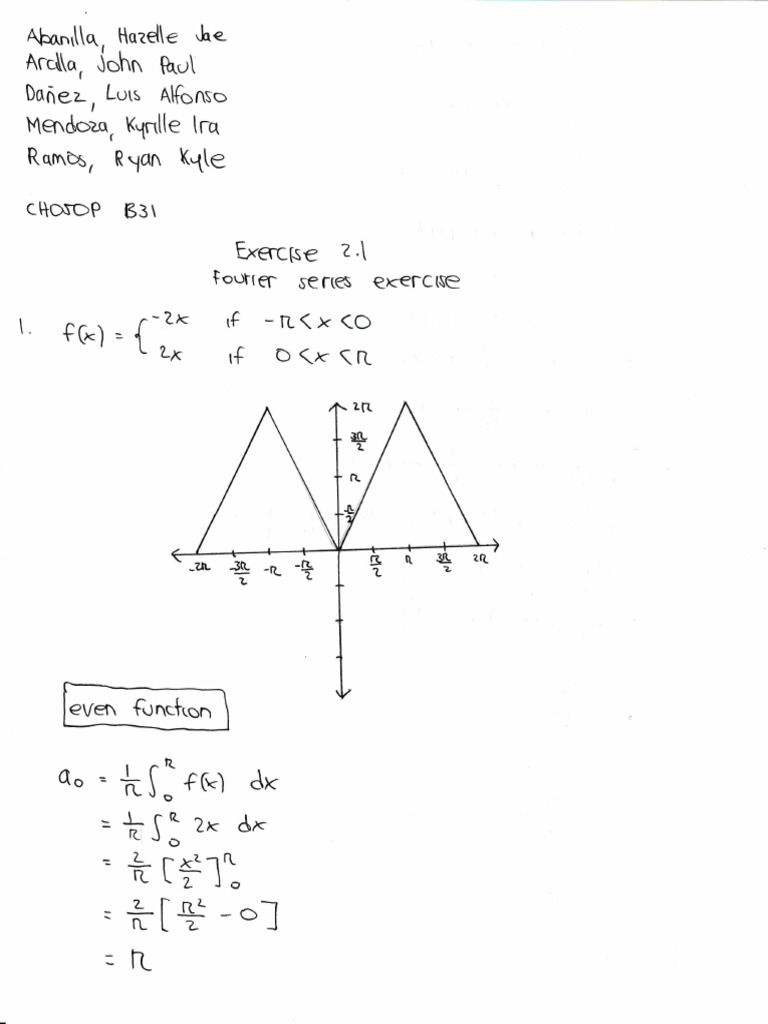 Abanilla, Hazelle Jae
Arcilla, John Paul
Dañez, Luis Alfonso
Mendoza, Kyrille Ira
Ramos, Ryan Kyle
CHO50P B31
Exercise 2.1
Fourier series exercise
1. f(x) = { -2x if -π < x < 0
2x if 0 < x < π
2π
3π/2
π
π/2
-2π -3π/2 -π -π/2 π/2 π 3π/2 2π
even function
a₀ = 1/π ∫₀^π f(x) dx
= 1/π ∫₀^π 2x dx
= 2/π [x²/2]₀^π
= 2/π [π²/2 - 0]
= π